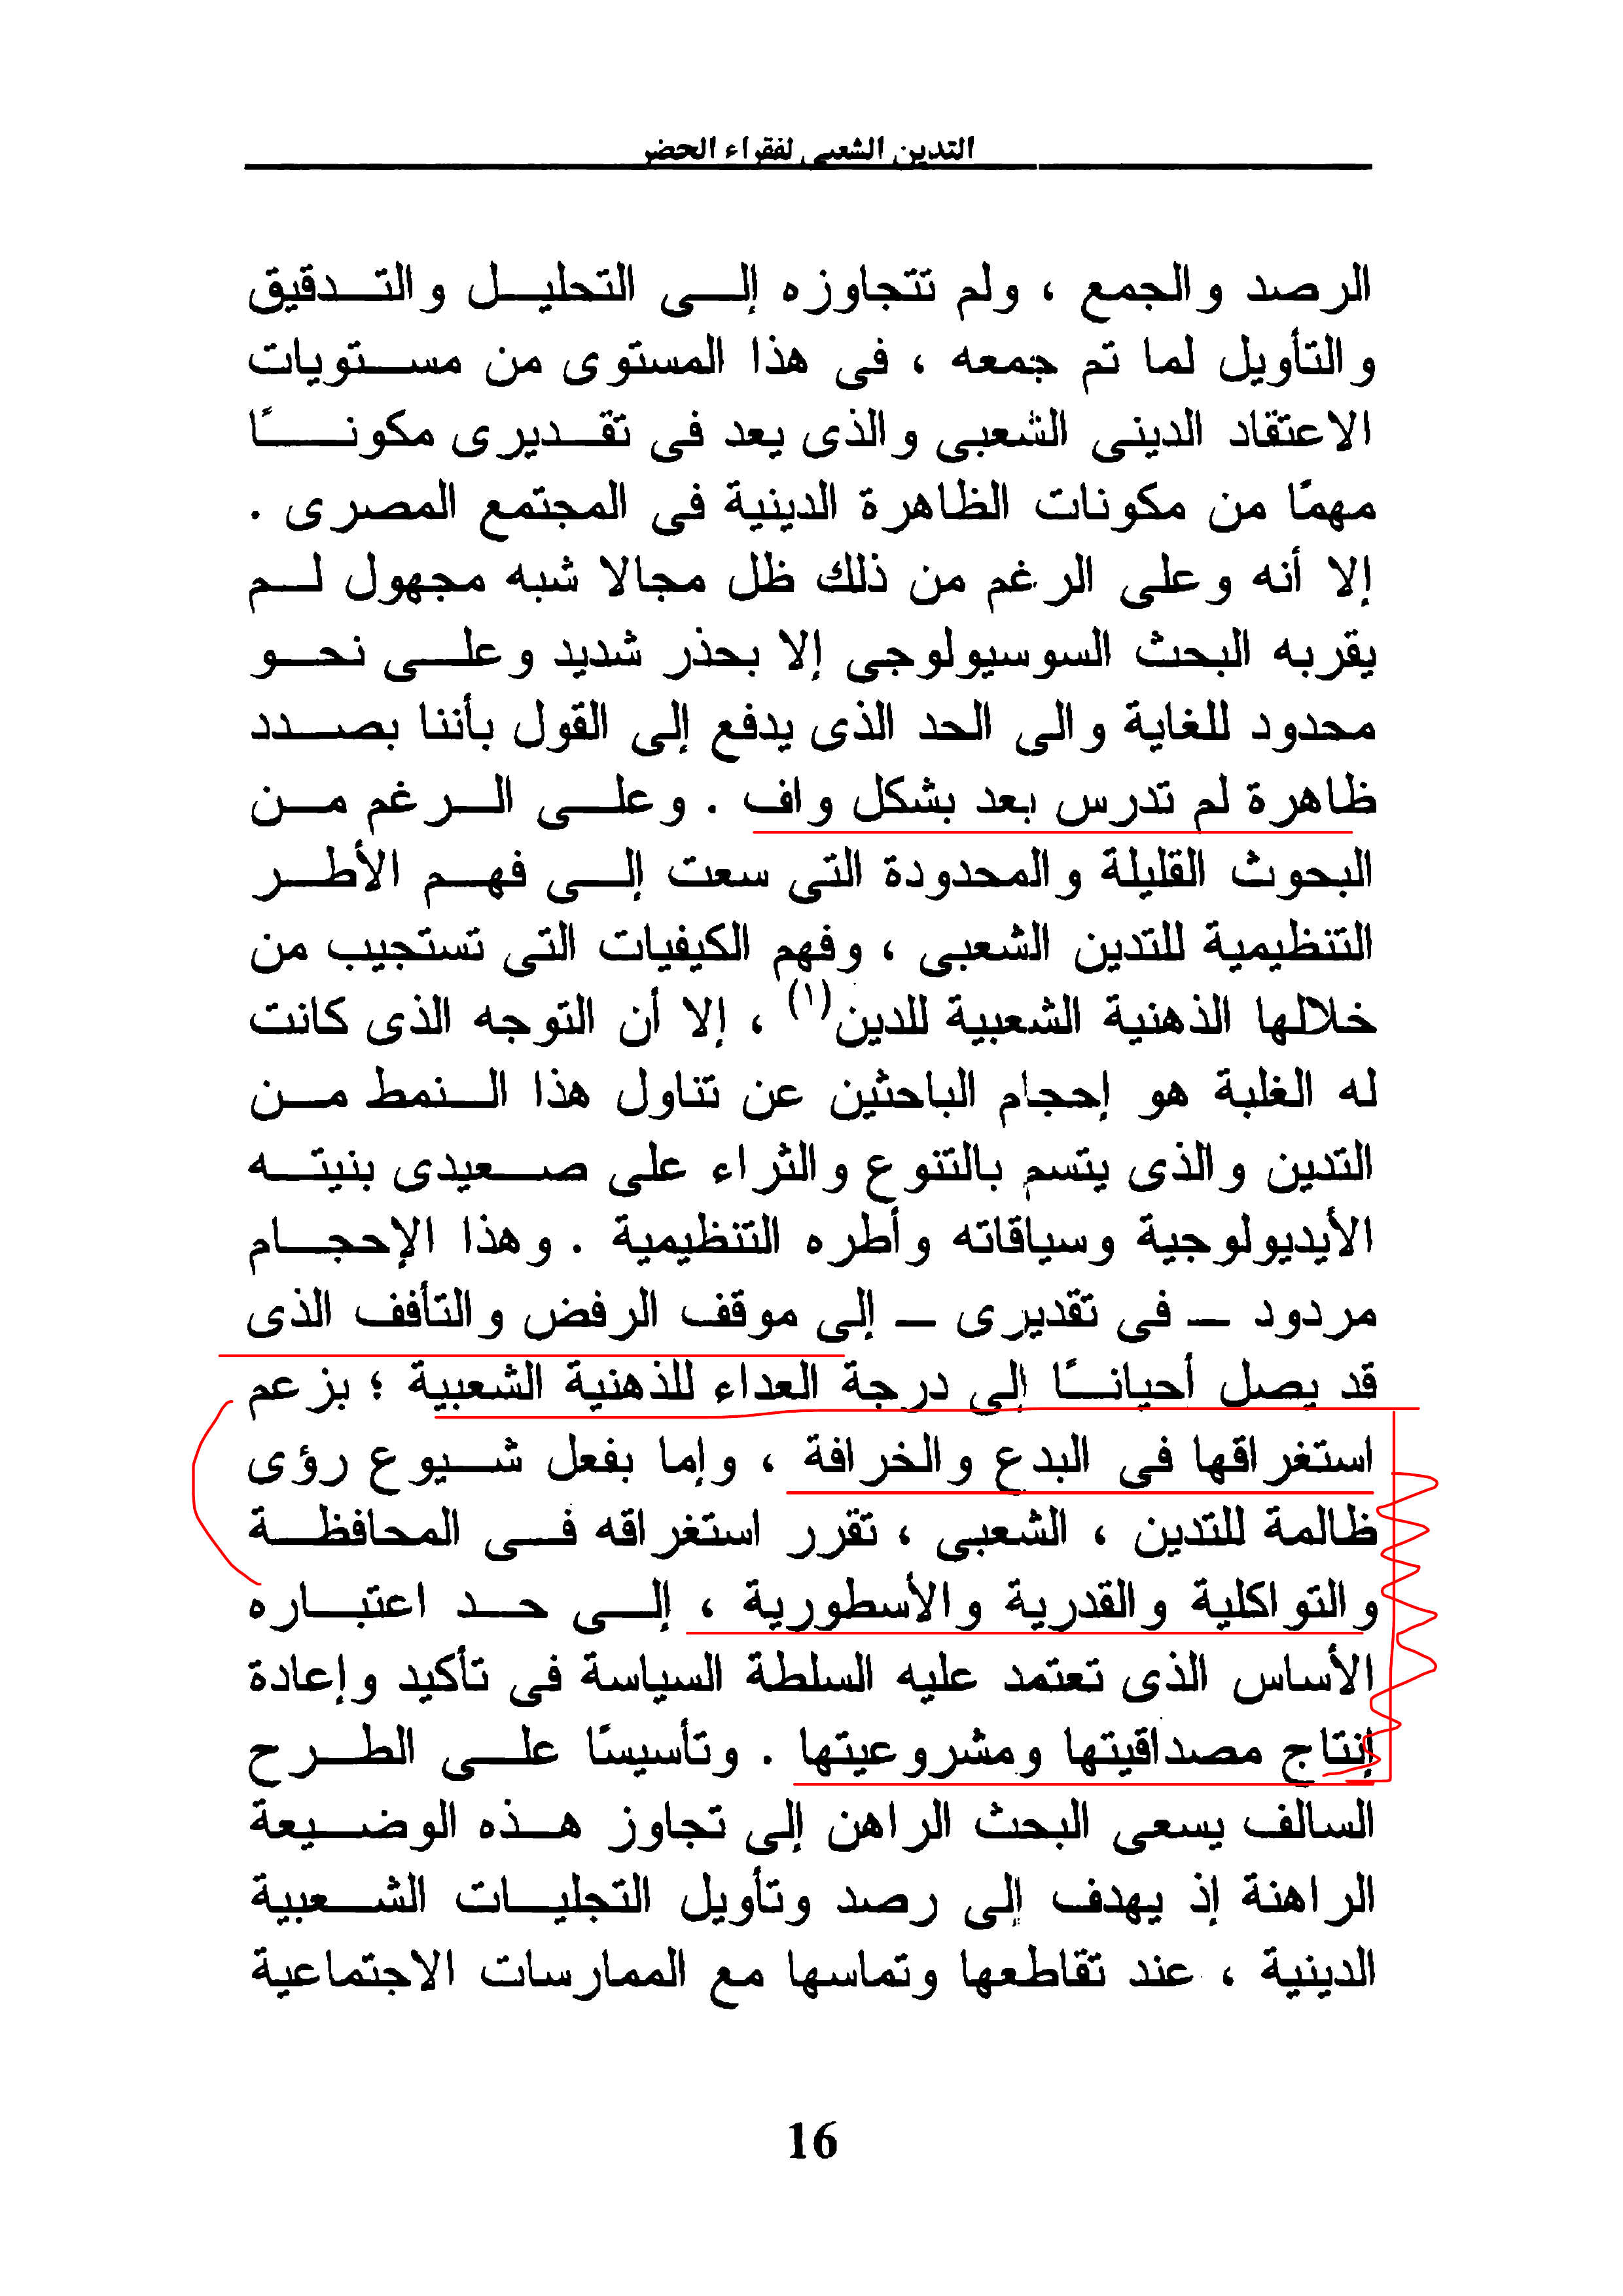 التدين الشعبى لفقراء الحضر
الرصد والجمع ، ولم تتجاوزه إلى التحليل والتدقيق
والتأويل لما تم جمعه ، فى هذا المستوى من مستويات
الاعتقاد الدينى الشعبى والذى يعد فى تقديرى مكونًا
مهمًا من مكونات الظاهرة الدينية فى المجتمع المصرى .
إلا أنه وعلى الرغم من ذلك ظل مجالا شبه مجهول لم
يقربه البحث السوسيولوجى إلا بحذر شديد وعلى نحو
محدود للغاية والى الحد الذى يدفع إلى القول بأننا بصدد
ظاهرة لم تدرس بعد بشكل واف . وعلى الرغم من
البحوث القليلة والمحدودة التى سعت إلى فهم الأطر
التنظيمية للتدين الشعبى ، وفهم الكيفيات التى تستجيب من
خلالها الذهنية الشعبية للدين(١) ، إلا أن التوجه الذى كانت
له الغلبة هو إحجام الباحثين عن تناول هذا النمط من
التدين والذى يتسم بالتنوع والثراء على صعيدى بنيته
الأيديولوجية وسياقاته وأطره التنظيمية . وهذا الإحجام
مردود – فى تقديرى – إلى موقف الرفض والتأفف الذى
قد يصل أحيانًا إلى درجة العداء للذهنية الشعبية ؛ بزعم
استغراقها فى البدع والخرافة ، وإما بفعل شيوع رؤى
ظالمة للتدين ، الشعبى ، تقرر استغراقه فى المحافظة
والتواكلية والقدرية والأسطورية ، إلى حد اعتباره
الأساس الذى تعتمد عليه السلطة السياسة فى تأكيد وإعادة
إنتاج مصداقيتها ومشروعيتها . وتأسيسًا على الطرح
السالف يسعى البحث الراهن إلى تجاوز هذه الوضيعة
الراهنة إذ يهدف إلى رصد وتأويل التجليات الشعبية
الدينية ، عند تقاطعها وتماسها مع الممارسات الاجتماعية
16